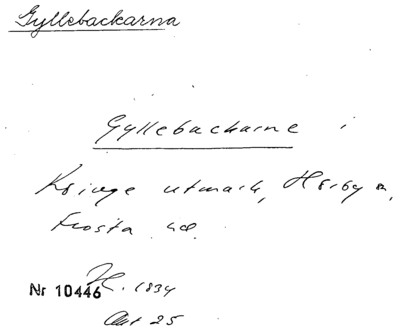 Gyllebackarna
Gyllebackarne i
utmark, Hörby sn,
Frosta hd.
Nr 10446 H. 1834
Akt 25